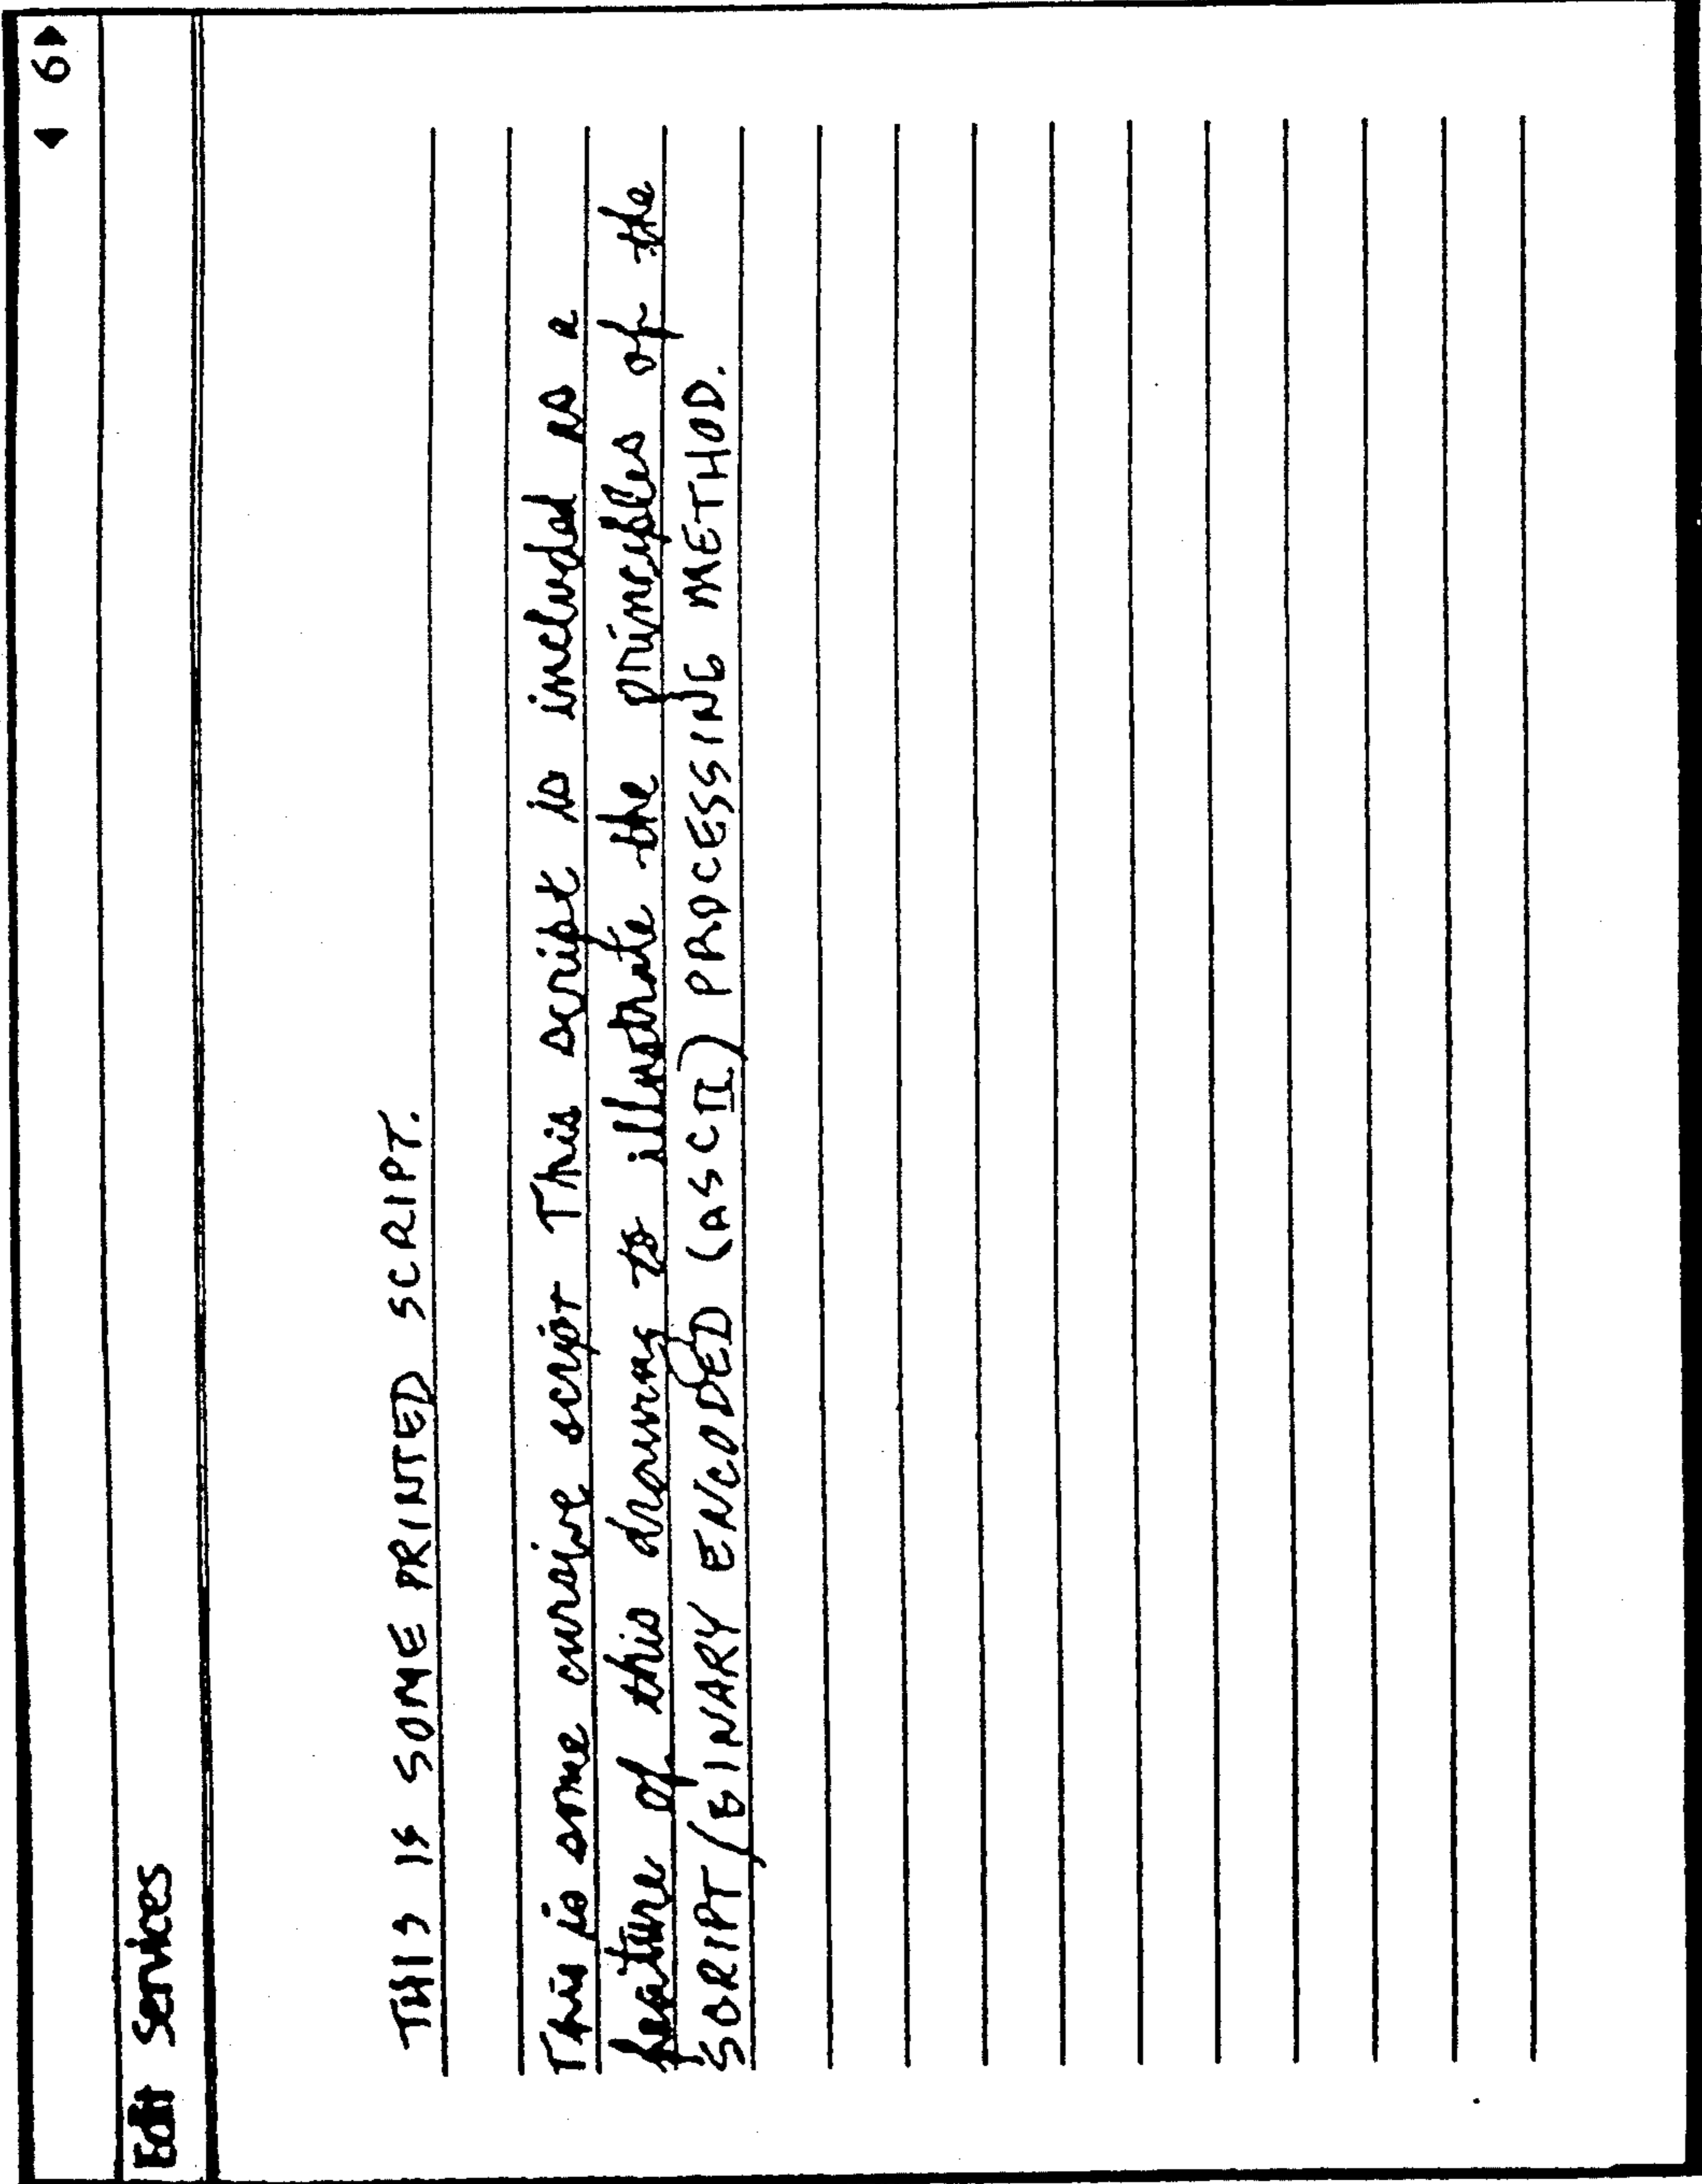 6
Edit Services
THIS IS SOME PRINTED SCRIPT.
This is some cursive script This script is included as a
feature of this drawing to illustrate the principles of the
SCRIPT/BINARY ENCODED (ASCII) PROCESSING METHOD.